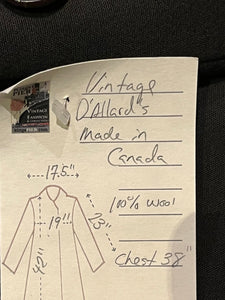 VINTAGE
FASHION
Vintage
D'Allard's
Made in
Canada
17.5"
100% Wool
19"
23"
42"
Chest 38"